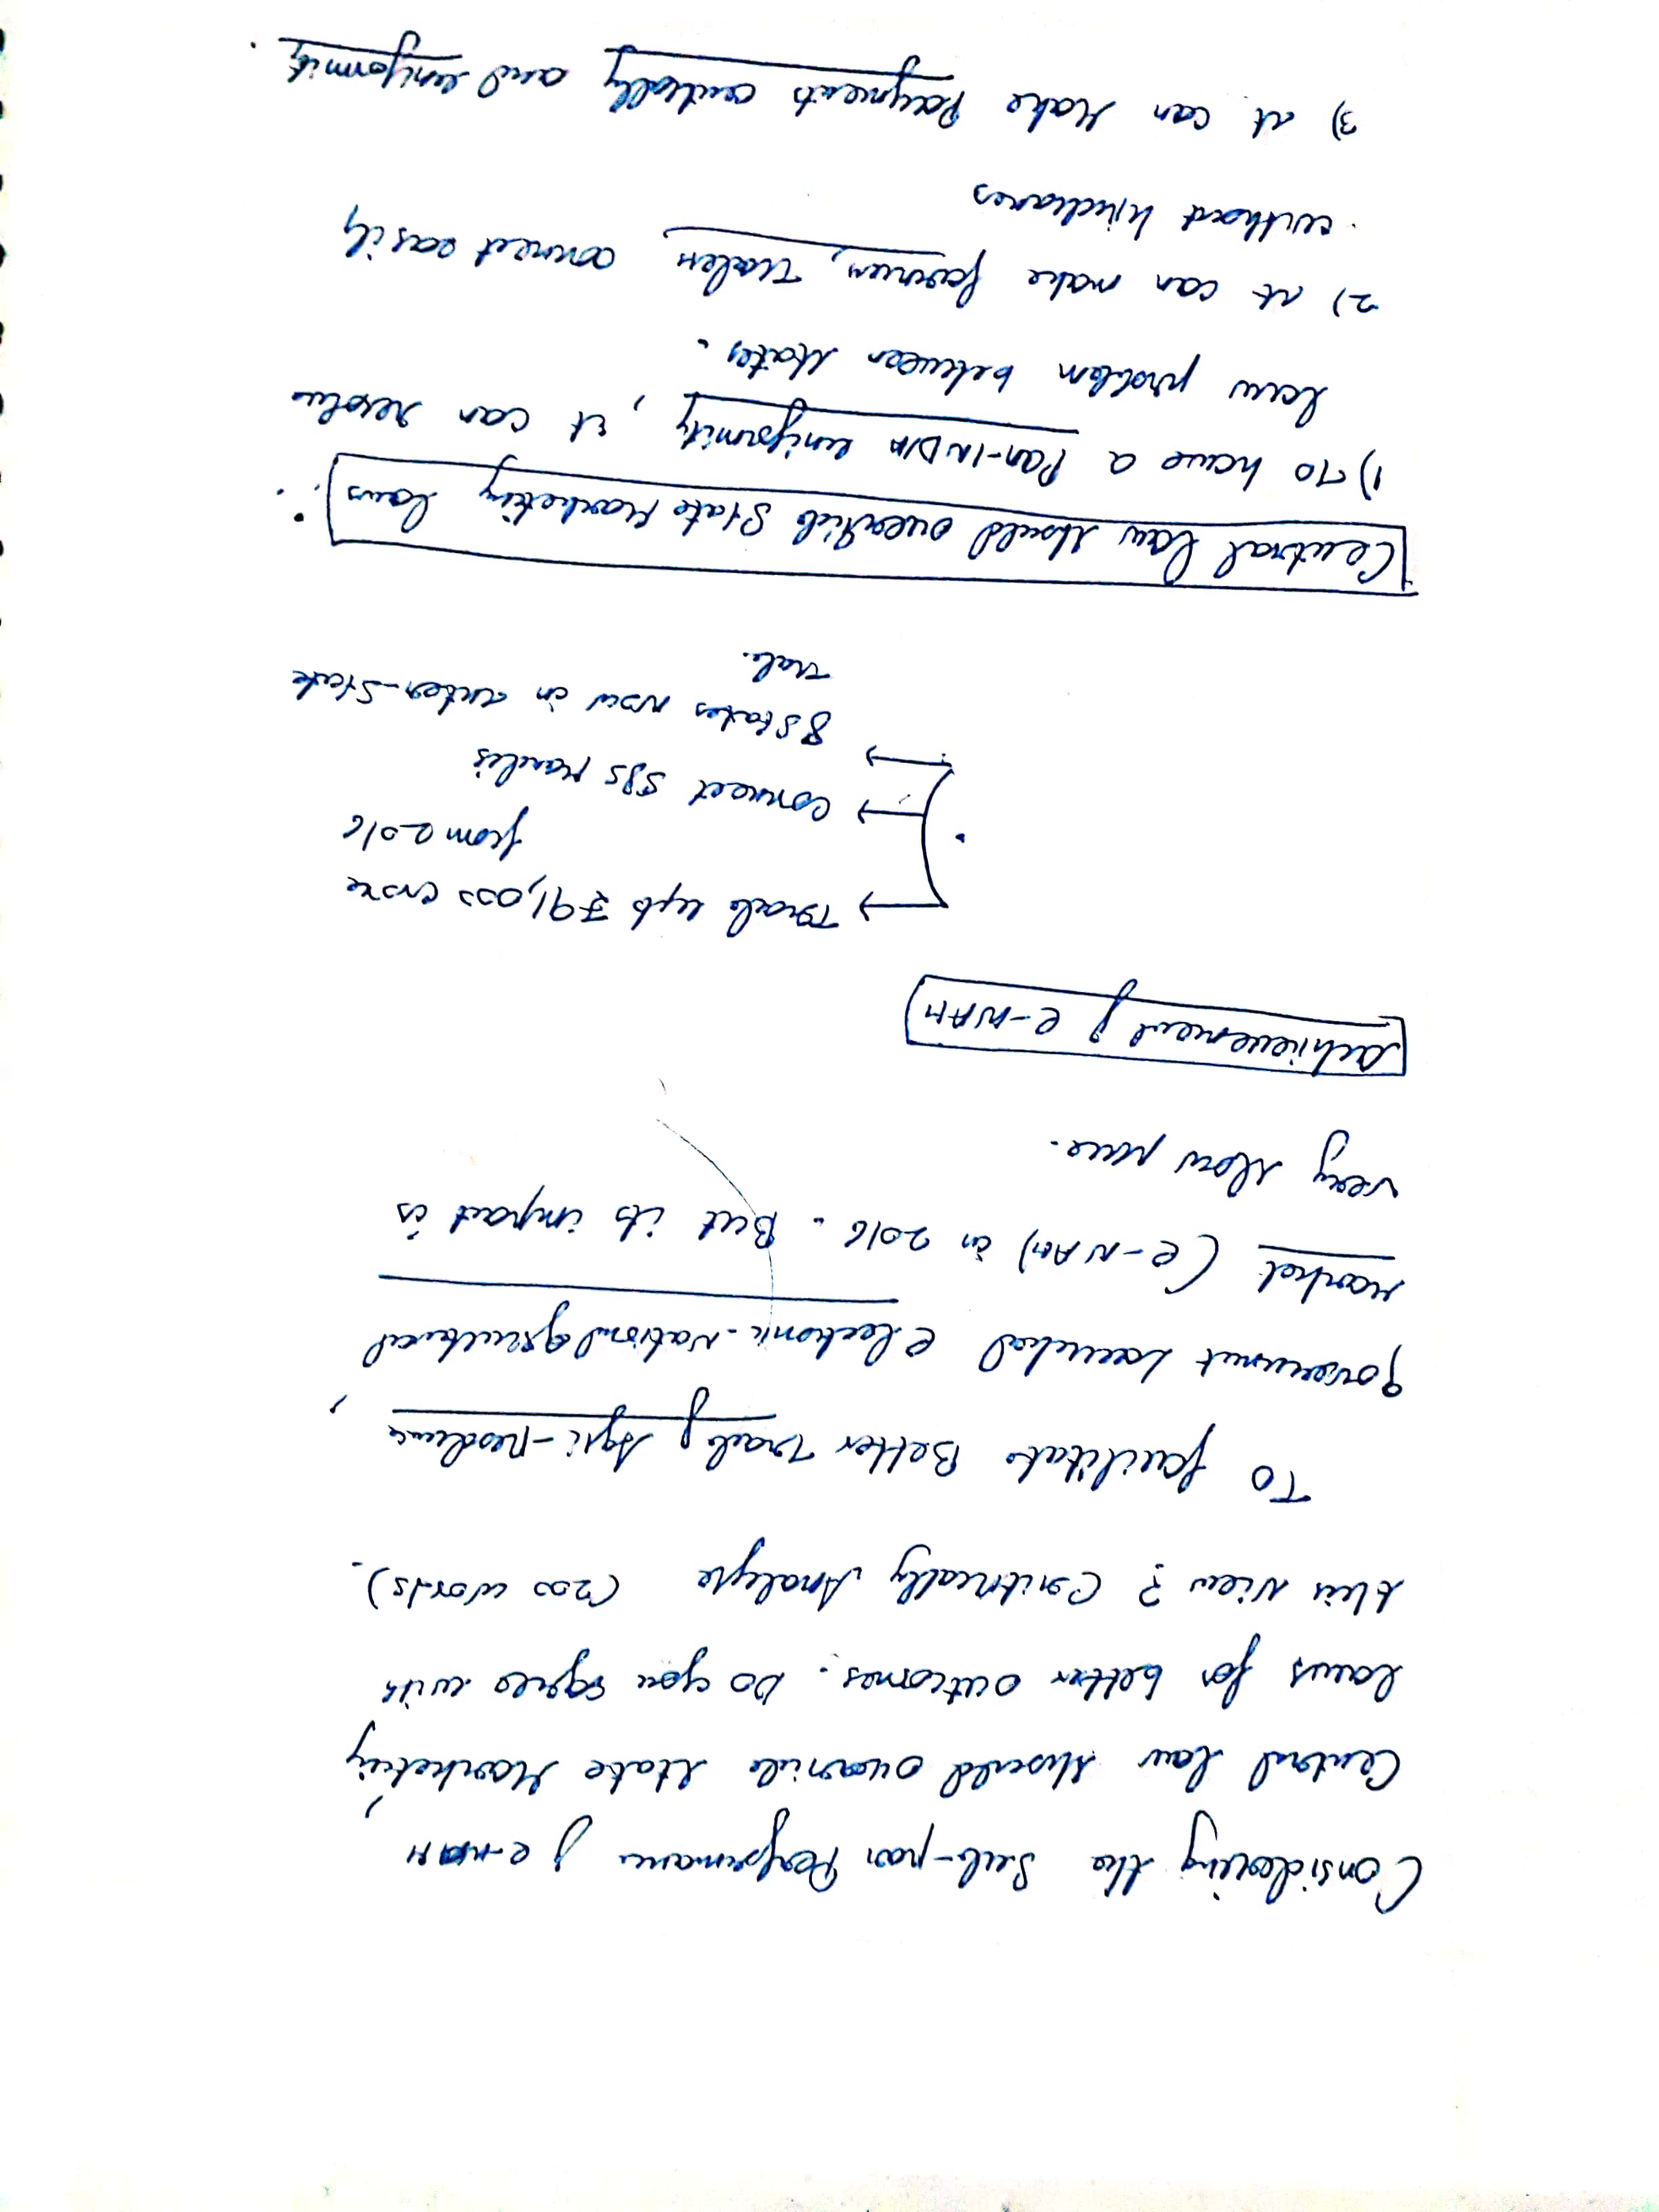 Considering the Sub-par Performance of e-NAM,
Central law should override State Marketing
laws for better outcomes. Do you agree with
this view? Critically Analyse (200 words).
To facilitate Better Trade of Agri-Produce,
government launched electronic-National Agricultural
Market (e-NAM) in 2016. But its impact is
very slow pace.
Achievement of e-NAM
→ Trade upto ₹91,000 crore
from 2016
→ Connect 585 Mandis
→ 8 States now in inter-State
trade.
Central law should override State Marketing laws :
1) To have a Pan-INDIA uniformity, it can resolve
law problem between states.
2) It can make farmers, traders connect easily
without hindrances
3) It can make Payments centrally and uniformity.